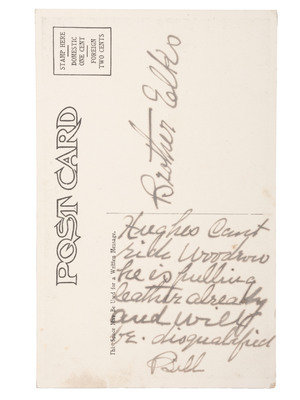 STAMP HERE
DOMESTIC
ONE CENT
FOREIGN
TWO CENTS
POST CARD
This Space May Be Used for a Written Message.
Brother Elks
Hughes Cant
ride Woodrow
he is pulling
leather already
and will
be. disqualified
Bill